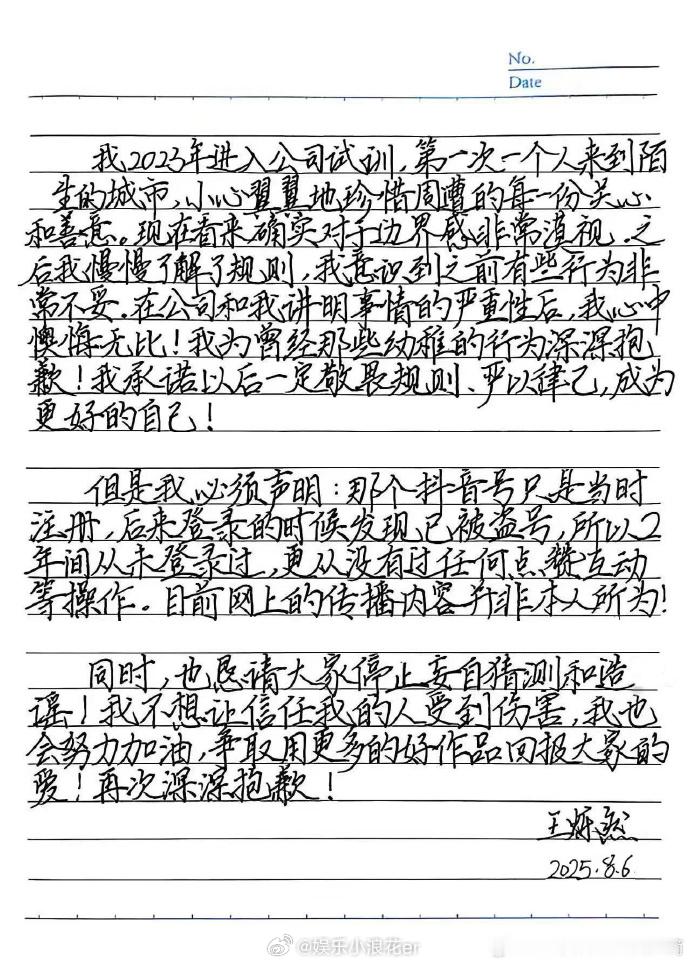 No.
Date
我2023年进入公司试训,第一次一个人来到陌
生的城市,小心翼翼地珍惜周遭的每一份关心
和善意。现在看来确实对于边界感非常漠视.之
后我慢慢了解了规则,我意识到之前有些行为非
常不妥.在公司和我讲明事情的严重性后,我心中
懊悔无比!我为曾经那些幼稚的行为深深抱
歉!我承诺以后一定敬畏规则、严以律己,成为
更好的自己!
但是我必须声明:那个抖音号只是当时
注册,后来登录的时候发现已被盗号,所以2
年间从未登录过,更从没有过任何点赞互动
等操作。目前网上的传播内容并非本人所为!
同时,也恳请大家停止妄自猜测和造
谣!我不想让信任我的人受到伤害,我也
会努力加油,争取用更多的好作品回报大家的
爱!再次深深抱歉!
王烁然
2025.8.6
@娱乐小浪花er